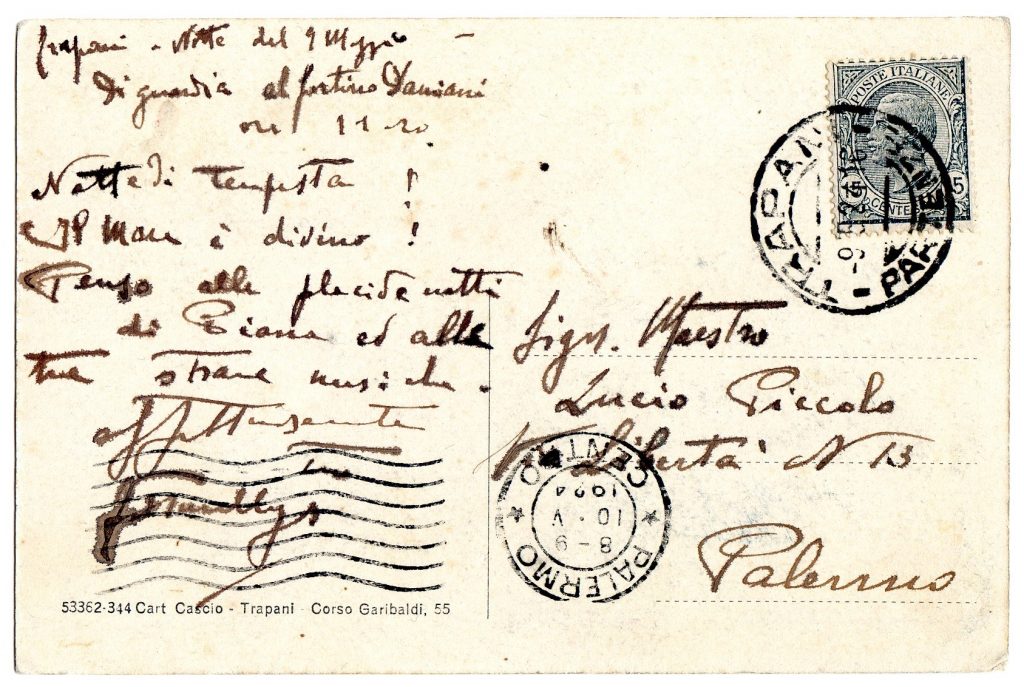 Trapani - Notte del 9 Maggio -
Di guardia al fortino Damiani
ore 11.20
Notte di tempesta !
Il Mare è divino !
Penso alle placide notti
di Piana ed alle
tue strane musiche.
affettuosamente
53362-344 Cart Cascio - Trapani - Corso Garibaldi, 55
POSTE ITALIANE
15
CENTES
TRAPANI
PARTENZA
Sign. Maestro
Lucio Piccolo
Via Libertà N 13
Palermo
PALERMO CENTRO
1924
10 · V
8 - 9